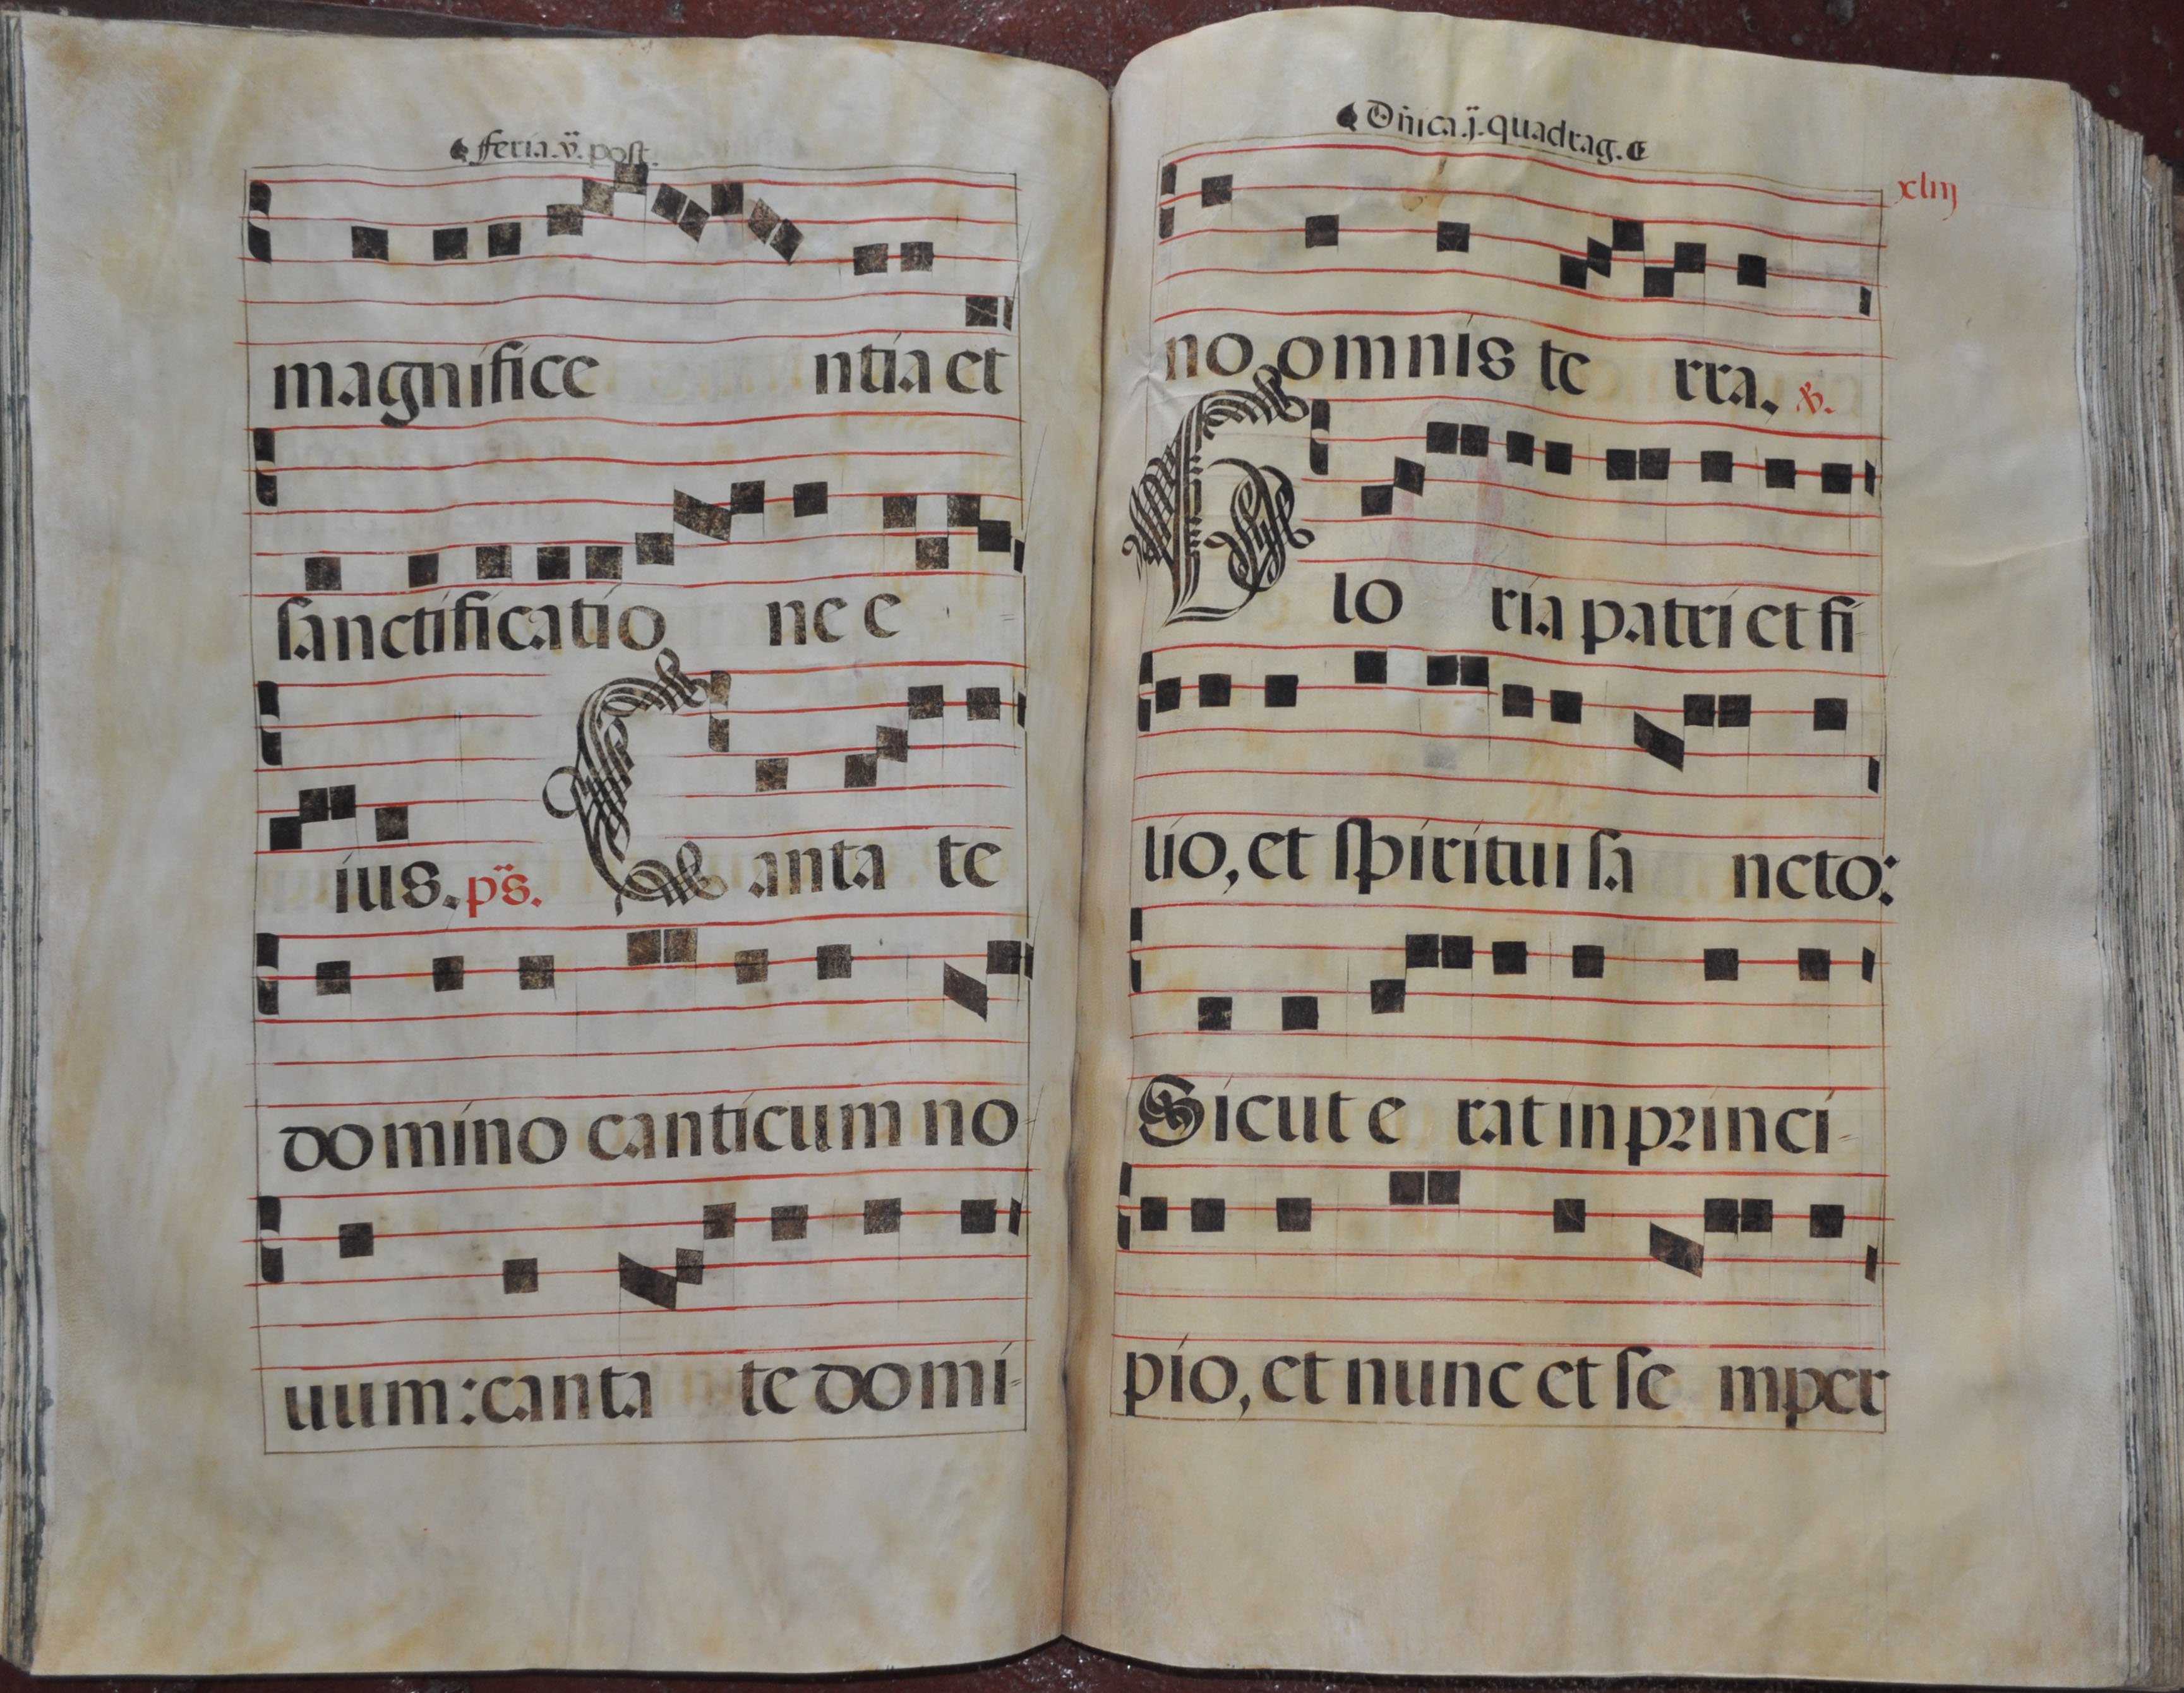 feria.v. post.
magnifice ntia et
sanctificatio ne e
ius. ps. Canta te
domino canticum no
uum: canta te domi-
Dñica.j. quadrag.
xliij
no omnis te rra. ℣.
Glo ria patri et fi
lio, et spiritui sa ncto:
Sicut e rat in princi-
pio, et nunc et se mper